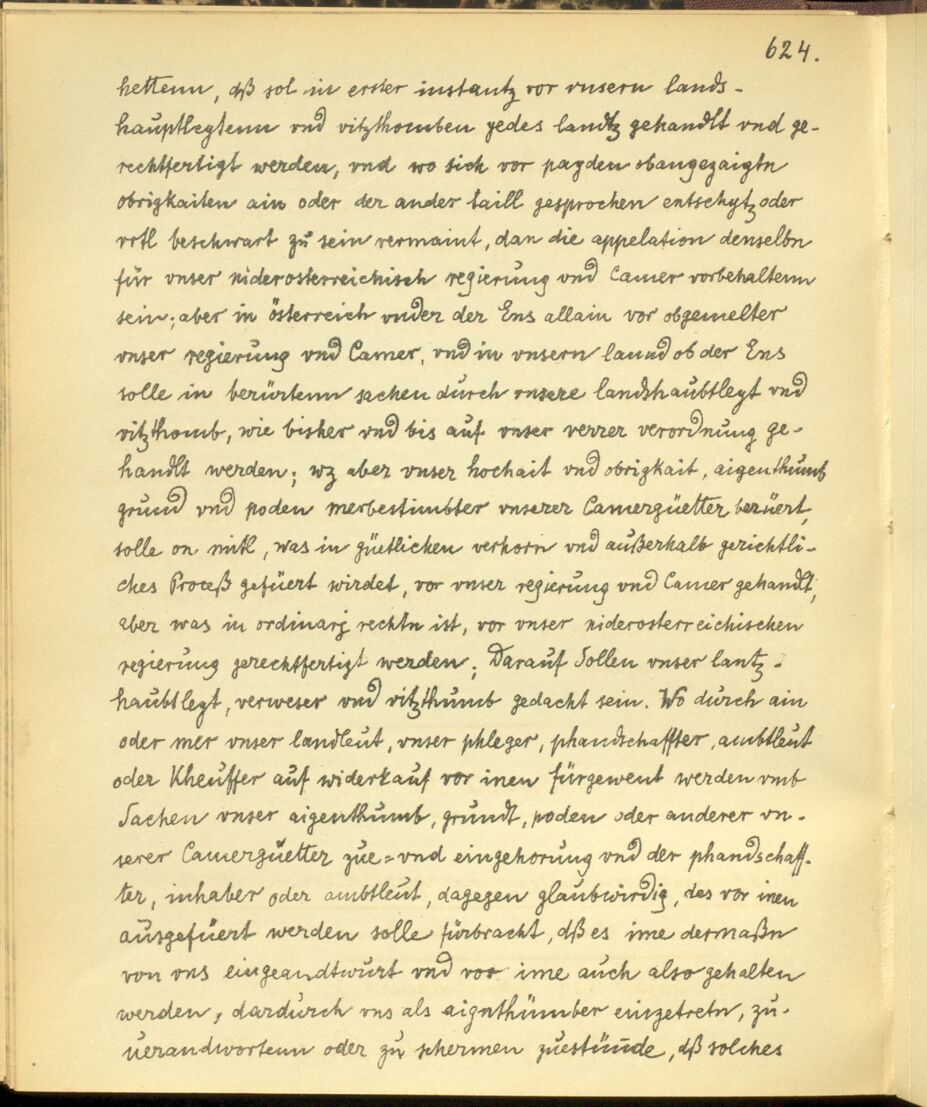 624.
hettenn, dß sol in erster instantz vor vnsern lands-
hauptlegtenn vnd vitzthomben yedes landtz gehandlt vnd ge-
rechtfertigt werden, vnd wo sich vor payden obangezaigtn
obrigkaiten ain oder der ander taill gesprochen entschytz oder
vrtl beschwart zu sein vermaint, dan die appelation denselbn
für vnser niderosterreichisch regierung vnd Camer vorbehaltenn
sein; aber in österreich vnder der Ens allain vor obgemelter
vnser regierung vnd Camer, vnd in vnsern lannd ob der Ens
solle in berürtenn sachen durch vnsere landshaubtlegt vnd
vitzthomb, wie bisher vnd bis auf vnser verrer verordnung ge-
handlt werden; wz aber vnser hochait vnd obrigkait, aigenthumb
grund vnd poden merbestimbter vnserer Camergüetter berüert,
solle on mitl, was in güetlichen verhorn vnd außerhalb gerichtli-
ches Proceß gefüert wirdet, vor vnser regierung vnd Camer gehandlt,
aber was in ordinarj rechtn ist, vor vnser niderosterreichischen
regierung gerechtfertigt werden; Darauf Sollen vnser lantz-
haubtlegt, verweser vnd vitzthumb gedacht sein. Wo durch ain
oder mer vnser landleut, vnser phleger, phandschaffter, ambtleut
oder Kheuffer auf widerkauf vor inen fürgewent werden vmb
Sachen vnser aigenthumb, grundt, poden oder anderer vn-
serer Camergüetter zue= vnd eingehorung vnd der phandschaff-
ter, inhaber oder ambtleut, dagegen glaubwirdig, des vor inen
ausgefüert werden solle fürbracht, dß es ime dermaßn
von vns eingeandtwurt vnd vor ime auch also gehalten
werden, dardurch vns als aignthümber einzetretn, zu-
uerandwortenn oder zu schermen zuestünde, dß solches